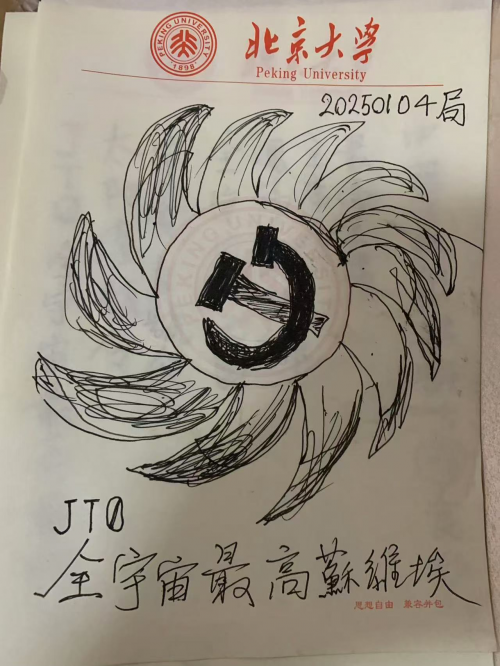 PEKING UNIVERSITY
1898
北京大学
Peking University
20250104局
PEKING UNIVERSITY
JT0
全宇宙最高蘇維埃
思想自由 兼容并包